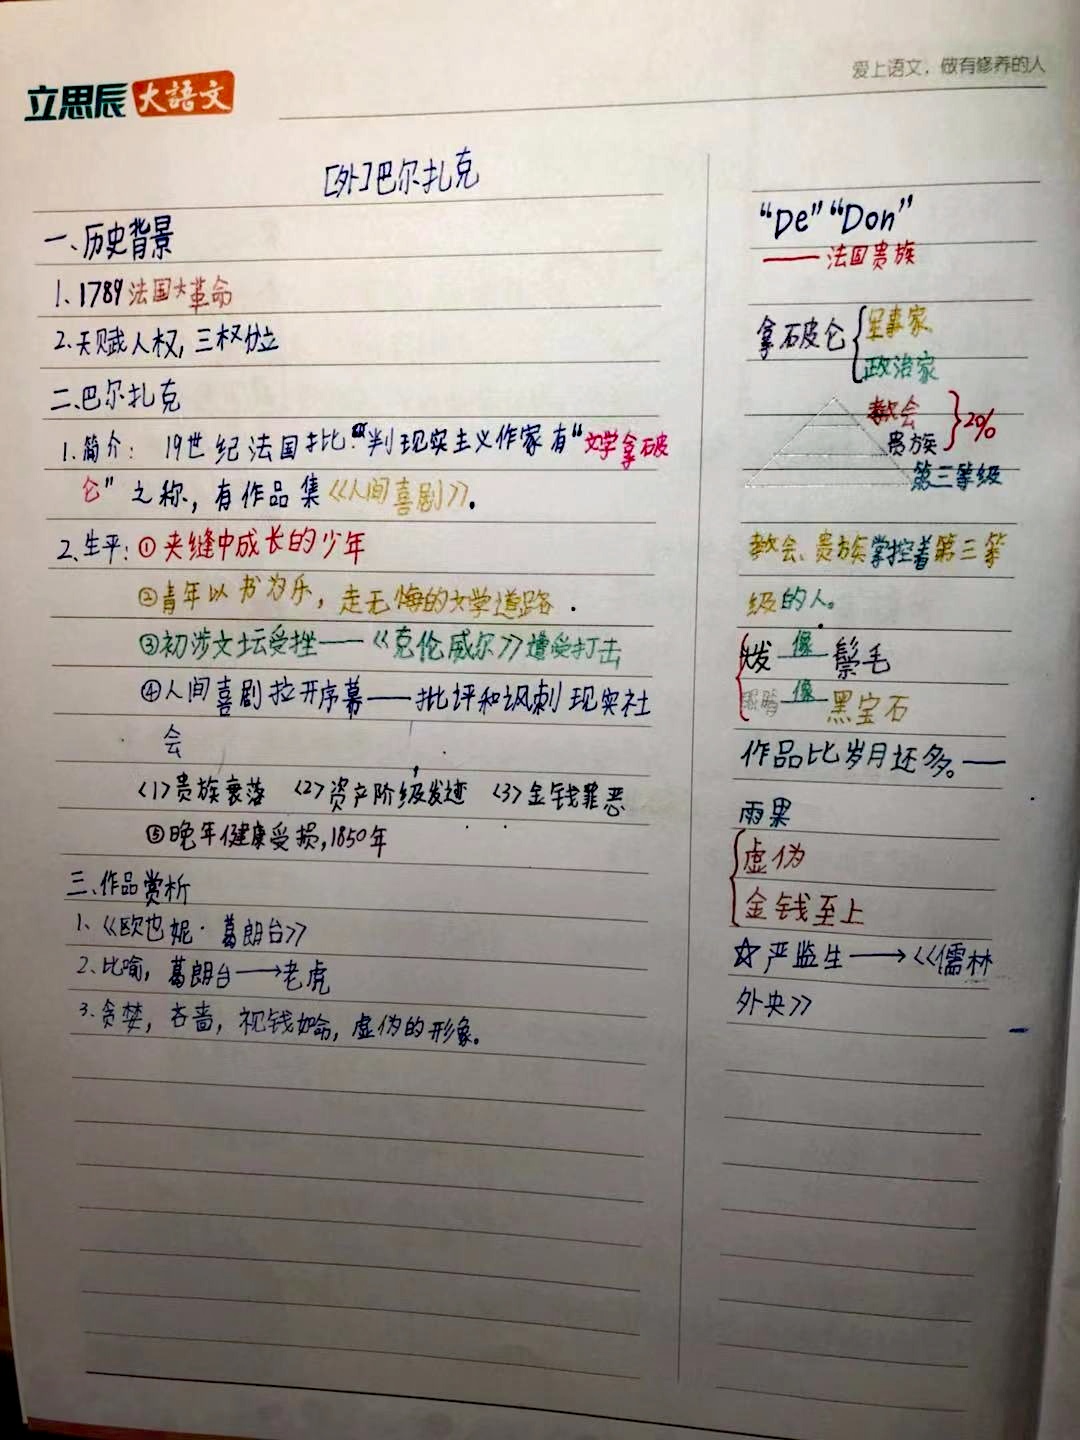 立思辰大語文
爱上语文，做有修养的人
[外]巴尔扎克
一、历史背景
1、1789法国大革命
2.天赋人权，三权分立
二、巴尔扎克
1、简介：19世纪法国批判现实主义作家有“文学拿破
仑”之称，有作品集《人间喜剧》。
2、生平：①夹缝中成长的少年
②青年以书为乐，走无悔的文学道路.
③初涉文坛受挫——《克伦威尔》遭受打击
④人间喜剧拉开序幕——批评和讽刺现实社
会
(1)贵族衰落 (2)资产阶级发迹 (3)金钱罪恶
⑤晚年健康受损，1850年
三、作品赏析
1、《欧也妮·葛朗台》
2.比喻，葛朗台→老虎
3.贪婪，吝啬，视钱如命，虚伪的形象。
“De”“Don”
——法国贵族
拿破仑{军事家
政治家
教会
贵族 }20%
第三等级
教会、贵族掌控着第三等
级的人。
发 像 鬃毛
眼睛 像 黑宝石
作品比岁月还多。——
雨果
虚伪
金钱至上
☆严监生→《儒林
外央》